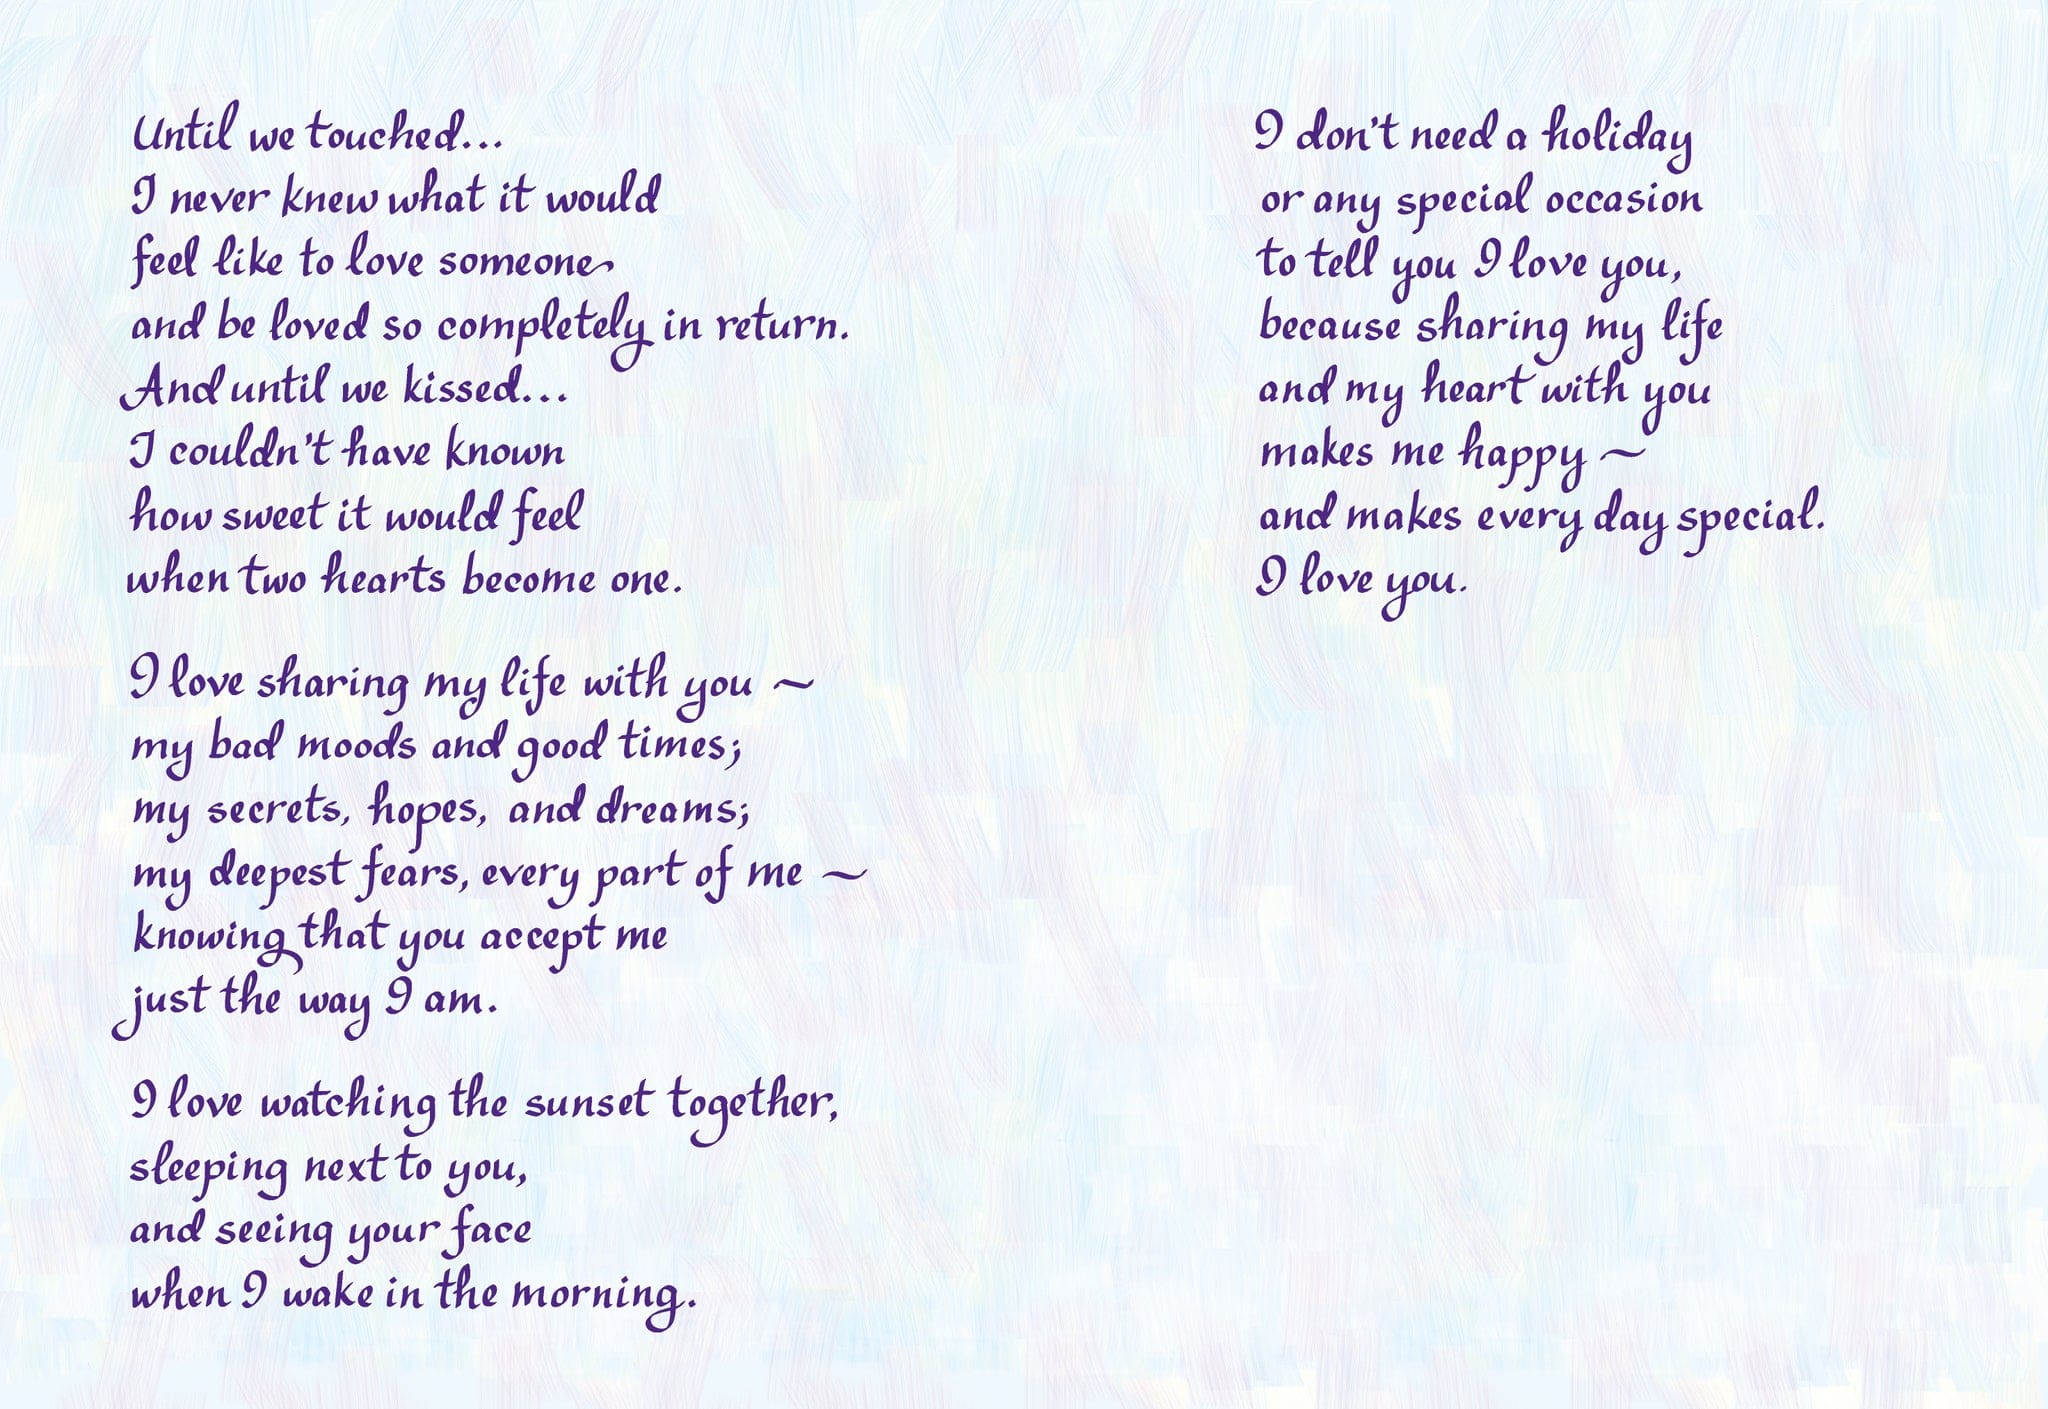 Until we touched...
I never knew what it would
feel like to love someone
and be loved so completely in return.
And until we kissed...
I couldn't have known
how sweet it would feel
when two hearts become one.
I love sharing my life with you ~
my bad moods and good times;
my secrets, hopes, and dreams;
my deepest fears, every part of me ~
knowing that you accept me
just the way I am.
I love watching the sunset together,
sleeping next to you,
and seeing your face
when I wake in the morning.
I don't need a holiday
or any special occasion
to tell you I love you,
because sharing my life
and my heart with you
makes me happy ~
and makes every day special.
I love you.